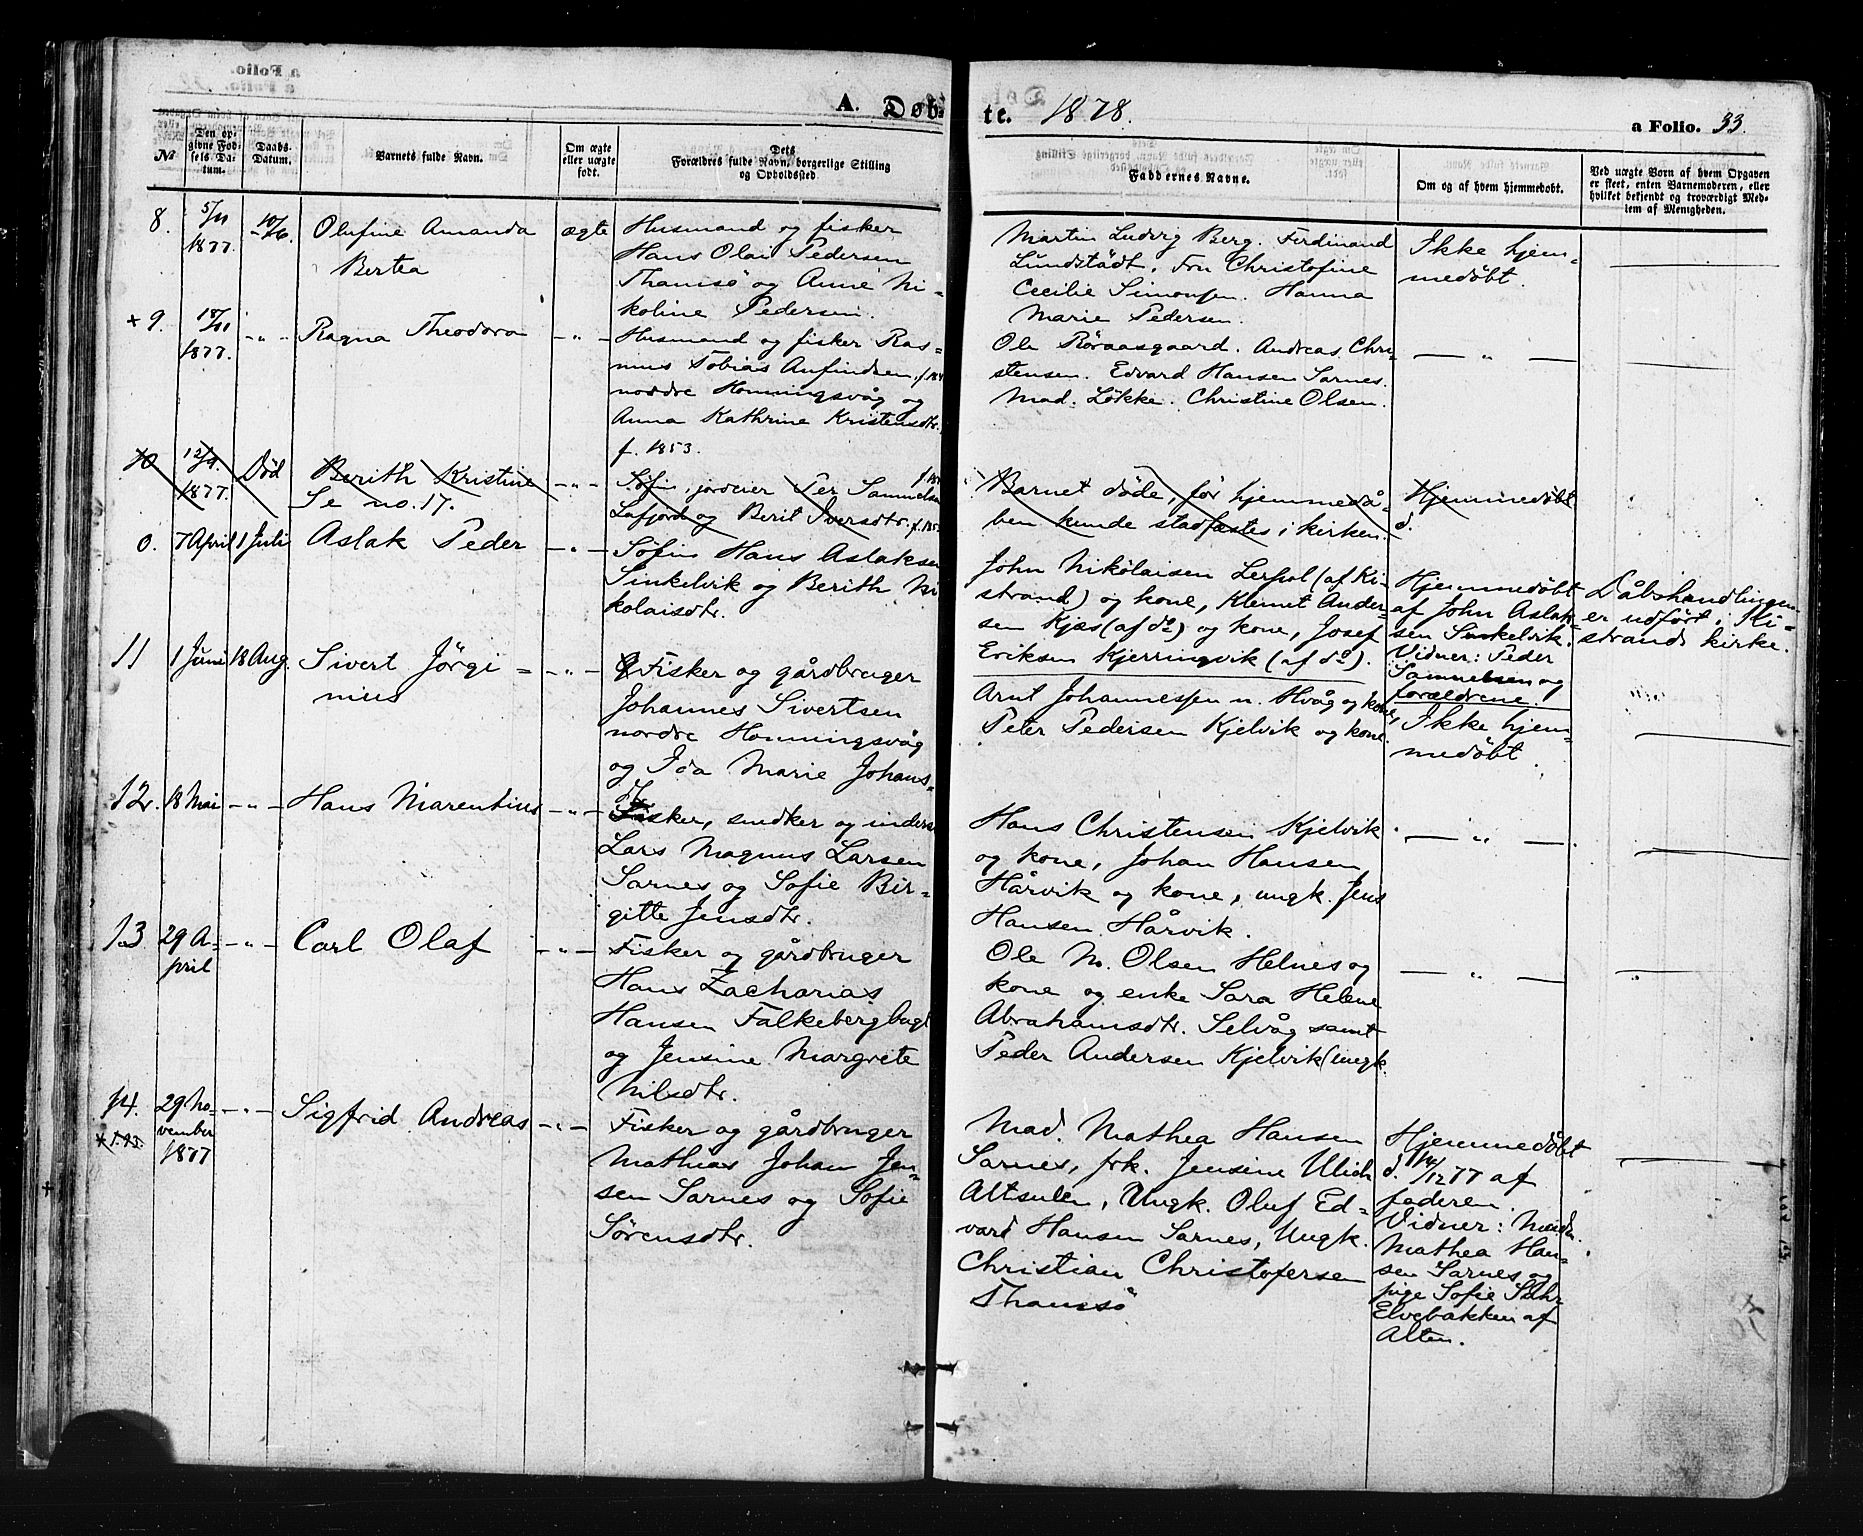 A. Døb-
te. 1878.
a Folio. 33.
№
Den op-
givne Fød-
sels Da-
tum.
Daabs-
Datum.
Barnets fulde Navn.
Om ægte
eller uægte
født.
Dets
Forældres fulde Navn, borgerlige Stilling
og Opholdssted
Faddernes Navne.
Om og af hvem hjemmedøbt.
Ved uægte Børn af hvem Opgaven
er skeet, enten Barnemoderen, eller
hvilket bekjendt og troværdigt Med-
lem af Menigheden.
8. 5/11 1877. 10/6.
Olufine Amanda
Bertea
ægte
Husmand og fisker
Hans Olai Pedersen
Thamsö og Anne Ni-
koline Pedersen.
Martin Ludvig Berg. Ferdinand
Lundstädt. Fru Christofine
Cecilie Simonsen. Hanna
Marie Pedersen.
Ikke hjem-
medöbt.
+ 9. 18/11 1877. -"-
Ragna Theodora
-"-
Husmand og fisker Ras-
mus Tobias Anfindsen
nordre Honningsvåg og
Anna Kathrine Kristensdtr.
f. 1853.
Ole Röraasgaard. Andreas Chri-
stensen. Edvard Hansen Sarnes.
Mad. Lökke. Christine Olsen.
— " —
10 1877. Död
Berith Kristine
Se no. 17.
-"-
Söfin, jordeier Per Sammelsen
Lafjord og Berit Iversdtr.
Barnet döde, för hjemmedå-
ben kunde stadfæstes i kirken.
Hjemmedöbt
d.
0. 7 April 1 Juli
Aslak Peder
-"-
Söfin Hans Aslaksen
Sinkelvik og Berith Ni
kolaisdtr.
John Nikolaisen Lerpol (af Ki-
strand) og kone, Klemet Ander-
sen Kjæs (af do) og kone, Josef
Eriksen Kjerringvik (af do).
Hjemmedöbt
af John Aslak-
sen Sinkelvik.
Vidner: Peder
Sammelsen og
forældrene.
Dåbshandlingen
er udfört i Ki-
strands kirke.
11 1 Juni 18 Aug.
Sivert Jörgi-
nius
-"-
Fisker og gårdbruger
Johannes Sivertsen
nordre Honningsvåg
og Ida Marie Johans-
Arnt Johannessen n. Hvåg og kone,
Peter Pedersen Kjelvik og kone.
Ikke hjem-
medöbt.
12. 18 Mai -"-
Hans Marentius
-"-
Fisker, snedker og inders
Lars Magnus Larsen
Sarnes og Sofie Bir-
gitte Jensdtr.
Hans Christensen Kjelvik
og kone, Johan Hansen
Hårvik og kone, ungk. Jens
Hansen Hårvik.
— " —
13 29 A-
pril -"-
Carl Olaf
-"-
Fisker og gårdbruger
Hans Zacharias
Hansen Falkeberg bugt
og Jensine Margrete
Nilsdtr.
Ole N. Olsen Helnes og
kone og enke Sara Helene
Abrahamsdtr. Selvåg samt
Peder Andersen Kjelvik (ungk.
— " —
14. 29 No-
vember
1877 -"-
Sigfrid Andreas
-"-
Fisker og gårdbruger
Mathias Johan Jen-
sen Sarnes og Sofie
Sörensdtr.
Mad. Mathea Hansen
Sarnes, frk. Jensine Ulich
Altsulen, Ungk. Oluf Ed-
vard Hansen Sarnes, Ungk.
Christian Christofersen
Thamsö
Hjemmedöbt
d. 14/12 77 af
faderen.
Vidner: Mad.
Mathea Han-
sen Sarnes og
pige Sofie
Elvebakken af
Alten.